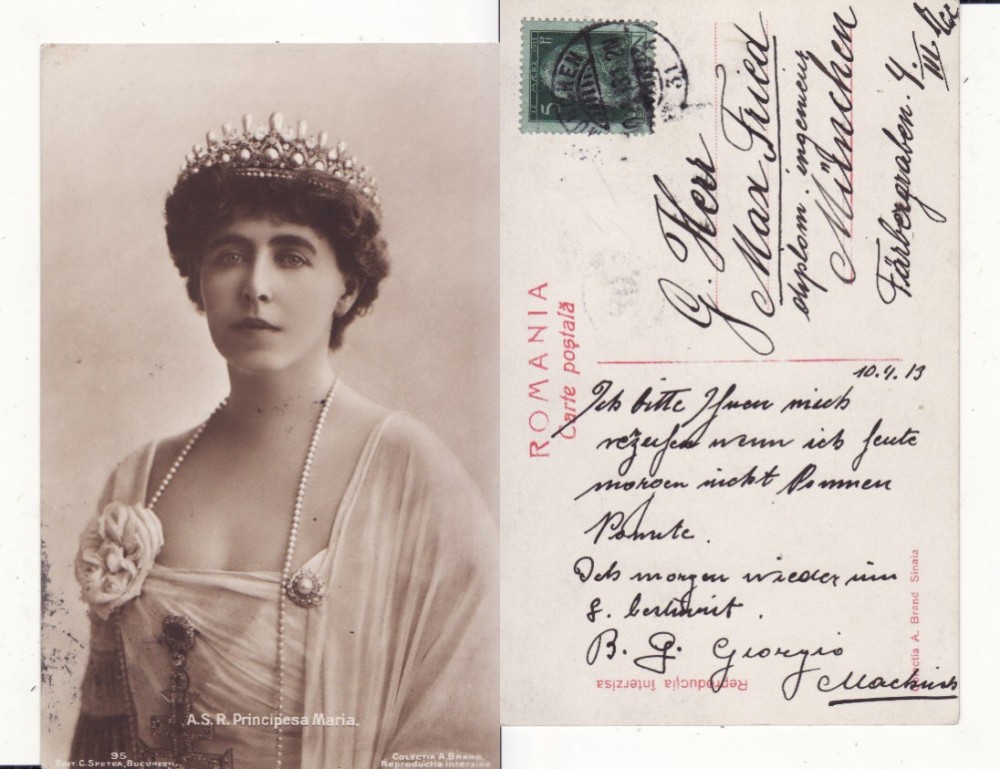 A.S.R. Principesa Maria.
95
EDIT. C. SPETEA, BUCUREȘTI
COLECTIA A. BRAND
Reproductia interzisa
5
ROMANIA
Carte poștală
G. Herr
Max Fried
diplom. ingenieur
München
Färbergraben. 4.
III.
10.4.13
Ich bitte Ihnen mich
wenn ich heute
morgen nicht kommen
konnte.
Ich morgen wieder um
bestimmt.
B. G. Giorgio
Colectia A. Brand Sinaia
Reproducția interzisa